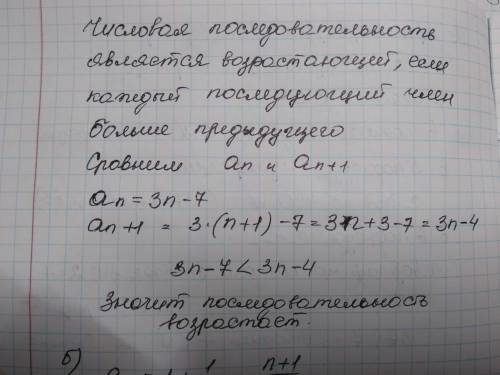 Числовая последовательность
является возрастающей, если
каждый последующий член
больше предыдущего
Сравним an и an+1
an = 3n-7
an+1 = 3·(n+1)-7=3n+3-7=3n-4
3n-7<3n-4
Значит последовательность
возрастает.
б) n+1